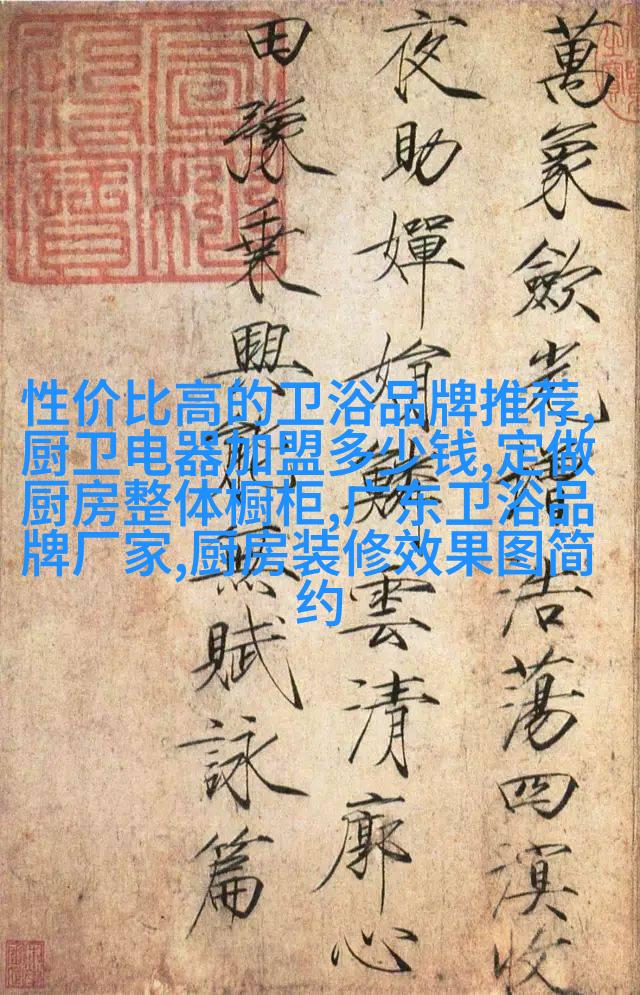 萬象歛光增浩蕩四溟收
夜助嬋娟鱗雲清廓心
田豫乗興能無賦詠篇
性价比高的卫浴品牌推荐,
厨卫电器加盟多少钱,定做
厨房整体橱柜,广东卫浴品
牌厂家,厨房装修效果图简
约